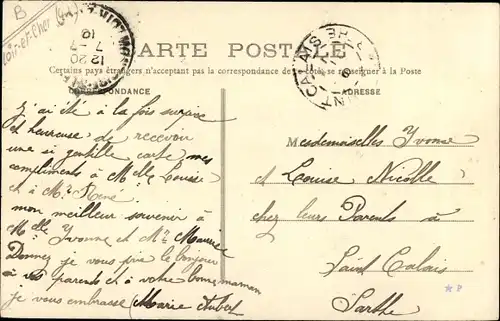 B
Loir-et-Cher
CARTE POSTALE
Certains pays étrangers n'acceptant pas la correspondance de ce côté, se renseigner à la Poste
CORRESPONDANCE
ADRESSE
12 20
7 - 7
10
SAINT CALAIS
J'ai été à la fois surprise
et heureuse de recevoir
une si gentille carte, mes
compliments à Melle Louise
et à Mr René
mon meilleur souvenir à
Melle Yvonne et Mr Maurice
Donnez je vous prie le bonjour
à vos parents et à votre bonne maman
je vous embrasse Marie Aubert
Mesdemoiselles Yvonne
et Louise Nicolle
chez leurs Parents à
Saint Calais
Sarthe
* P